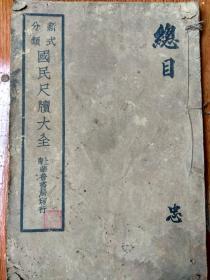 新式
分類
國民尺牘大全
上海
廣益書局印行
總目
忠